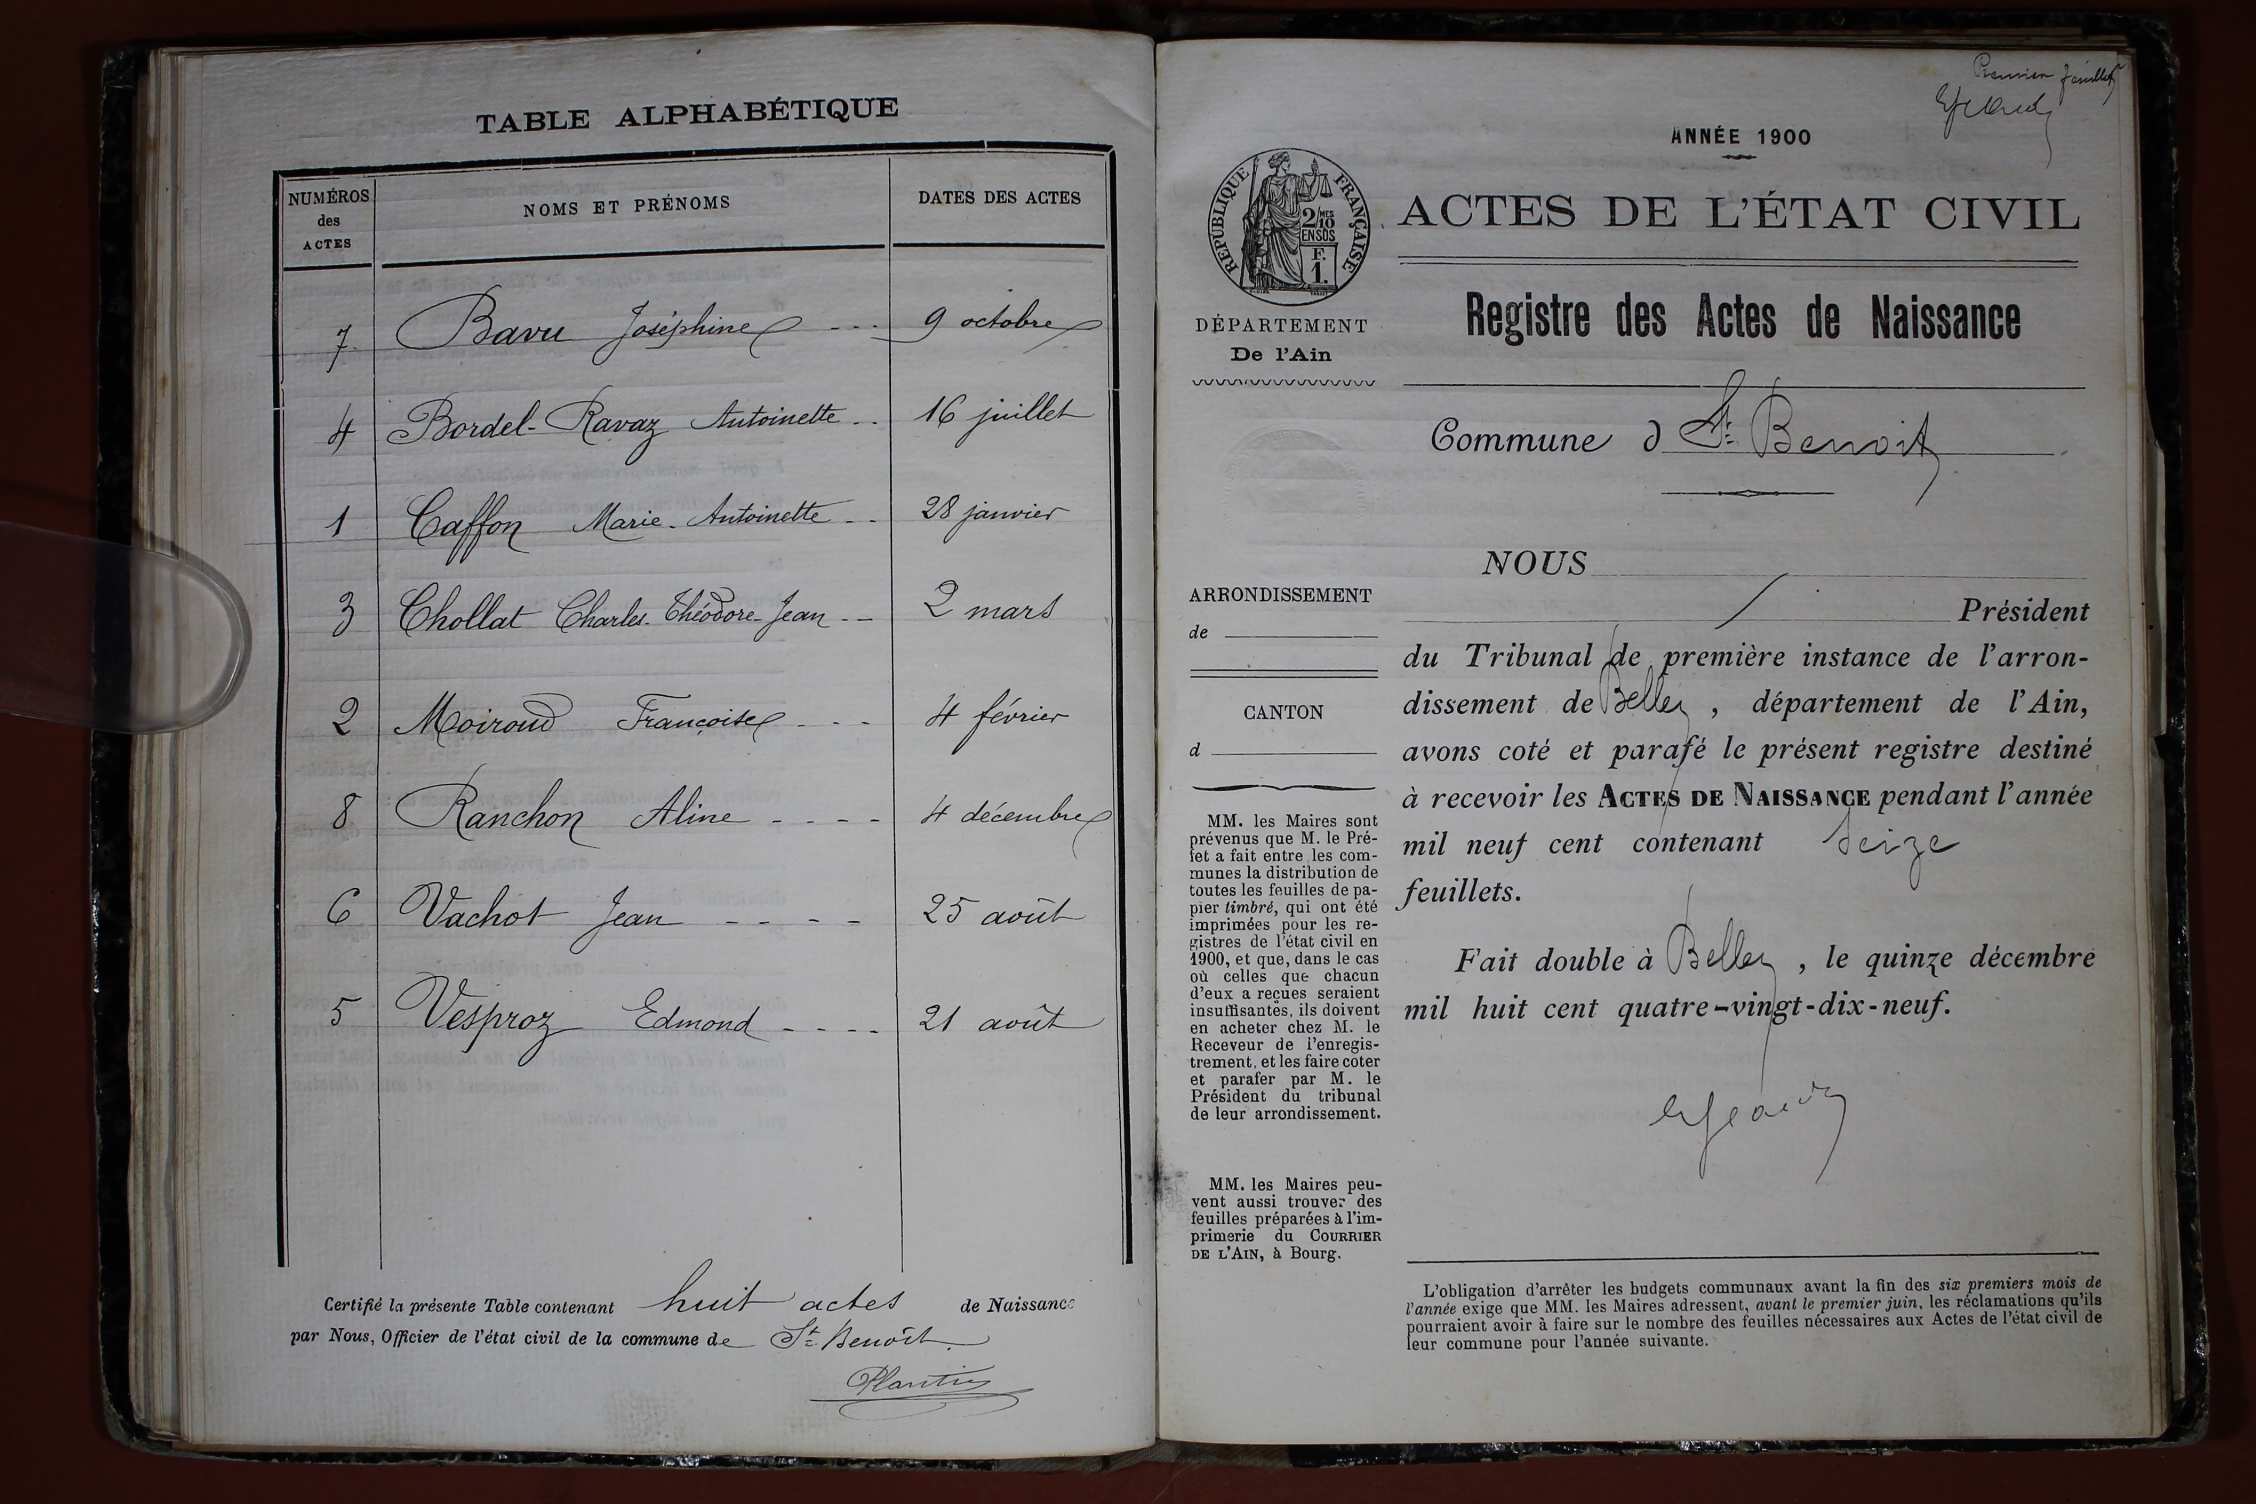 TABLE ALPHABÉTIQUE
NUMÉROS des ACTES
NOMS ET PRÉNOMS
DATES DES ACTES
7 Bavu Joséphine --- 9 octobre
4 Bordel-Ravaz Antoinette -- 16 juillet
1 Caffon Marie-Antoinette -- 28 janvier
3 Chollat Charles-Théodore-Jean -- 2 mars
2 Moiroud Françoise --- 4 février
8 Ranchon Aline ---- 4 décembre
6 Vachot Jean ---- 25 août
5 Vesproz Edmond ---- 21 août
Certifié la présente Table contenant huit actes de Naissance
par Nous, Officier de l'état civil de la commune de St Benoît.
Plantin
Premier feuillet
ANNÉE 1900
RÉPUBLIQUE FRANÇAISE
2/10 MES
EN SUS
F.
1.
ACTES DE L'ÉTAT CIVIL
DÉPARTEMENT
De l'Ain
Registre des Actes de Naissance
Commune d St Benoit
ARRONDISSEMENT
de
CANTON
d
MM. les Maires sont
prévenus que M. le Pré-
fet a fait entre les com-
munes la distribution de
toutes les feuilles de pa-
pier timbré, qui ont été
imprimées pour les re-
gistres de l'état civil en
1900, et que, dans le cas
où celles que chacun
d'eux a reçues seraient
insuffisantes, ils doivent
en acheter chez M. le
Receveur de l'enregis-
trement, et les faire coter
et parafer par M. le
Président du tribunal
de leur arrondissement.
MM. les Maires peu-
vent aussi trouver des
feuilles préparées à l'im-
primerie du COURRIER
DE L'AIN, à Bourg.
NOUS
Président
du Tribunal de première instance de l'arron-
dissement de Belley, département de l'Ain,
avons coté et parafé le présent registre destiné
à recevoir les ACTES DE NAISSANCE pendant l'année
mil neuf cent contenant seize
feuillets.
Fait double à Belley, le quinze décembre
mil huit cent quatre-vingt-dix-neuf.
L'obligation d'arrêter les budgets communaux avant la fin des six premiers mois de
l'année exige que MM. les Maires adressent, avant le premier juin, les réclamations qu'ils
pourraient avoir à faire sur le nombre des feuilles nécessaires aux Actes de l'état civil de
leur commune pour l'année suivante.